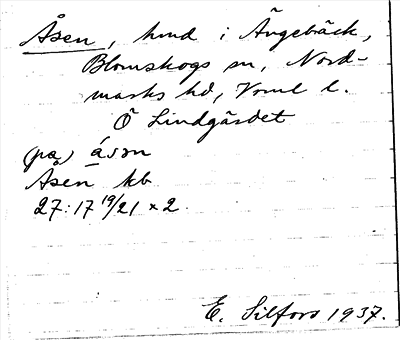 Åsen, hmd i Ängebäck,
Blomskogs sn, Nord-
marks hd, Vrml l.
Ö Lindgärdet
(på) åsƏn
Åsen kb
27:17 19/21 x 2
E. Silfors 1937.